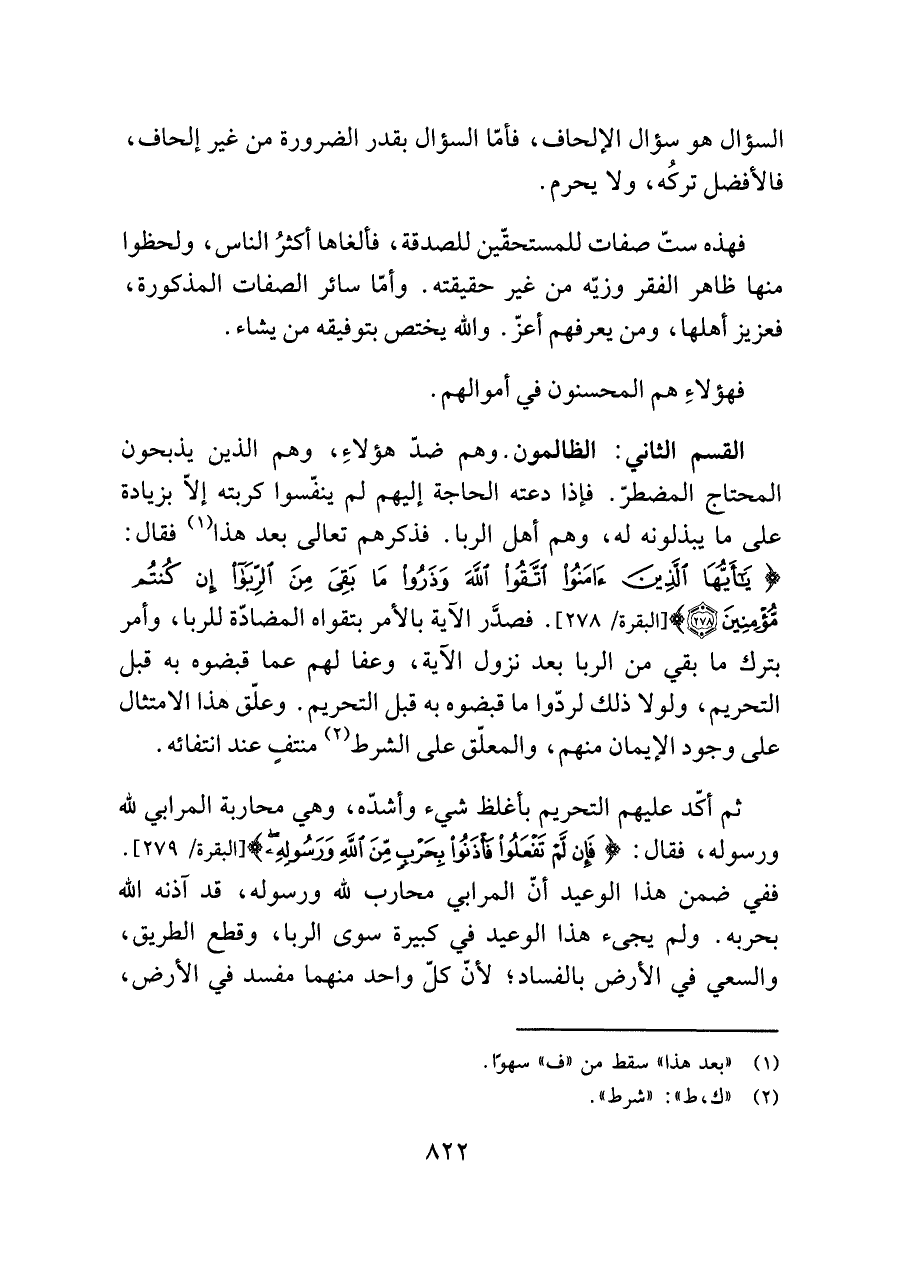 السؤال هو سؤال الإلحاف، فأمّا السؤال بقدر الضرورة من غير إلحاف،
فالأفضل تركُه، ولا يحرم.
فهذه ستّ صفات للمستحقّين للصدقة، فألغاها أكثرُ الناس، ولحظوا
منها ظاهر الفقر وزيّه من غير حقيقته. وأمّا سائر الصفات المذكورة،
فعزيز أهلها، ومن يعرفهم أعزّ. والله يختص بتوفيقه من يشاء.
فهؤلاءِ هم المحسنون في أموالهم.
القسم الثاني: الظالمون. وهم ضدّ هؤلاءِ، وهم الذين يذبحون
المحتاج المضطرّ. فإذا دعته الحاجة إليهم لم ينفّسوا كربته إلاّ بزيادة
على ما يبذلونه له، وهم أهل الربا. فذكرهم تعالى بعد هذا(١) فقال:
﴿ يَٰٓأَيُّهَا ٱلَّذِينَ ءَامَنُوا۟ ٱتَّقُوا۟ ٱللَّهَ وَذَرُوا۟ مَا بَقِىَ مِنَ ٱلرِّبَوٰٓا۟ إِن كُنتُم
مُّؤْمِنِينَ ٢٧٨﴾ [البقرة/ ٢٧٨]. فصدَّر الآية بالأمر بتقواه المضادّة للربا، وأمر
بترك ما بقي من الربا بعد نزول الآية، وعفا لهم عما قبضوه به قبل
التحريم، ولولا ذلك لردّوا ما قبضوه به قبل التحريم. وعلّق هذا الامتثال
على وجود الإيمان منهم، والمعلّق على الشرط(٢) منتفٍ عند انتفائه.
ثم أكّد عليهم التحريم بأغلظ شيء وأشدّه، وهي محاربة المرابي لله
ورسوله، فقال: ﴿ فَإِن لَّمْ تَفْعَلُوا۟ فَأْذَنُوا۟ بِحَرْبٍ مِّنَ ٱللَّهِ وَرَسُولِهِۦ﴾ [البقرة/ ٢٧٩].
ففي ضمن هذا الوعيد أنّ المرابي محارب لله ورسوله، قد آذنه الله
بحربه. ولم يجىء هذا الوعيد في كبيرة سوى الربا، وقطع الطريق،
والسعي في الأرض بالفساد؛ لأنّ كلّ واحد منهما مفسد في الأرض،
(١) «بعد هذا» سقط من «ف» سهوًا.
(٢) «ك، ط»: «شرط».
٨٢٢